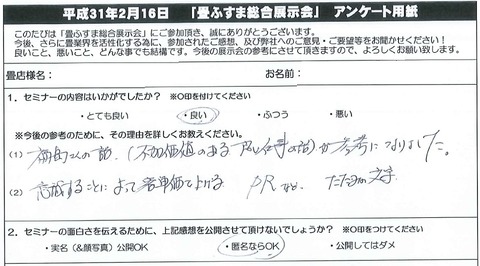 平成31年2月16日　「畳ふすま総合展示会」　アンケート用紙
このたびは「畳ふすま総合展示会」にご参加頂き、誠にありがとうございます。
今後、さらに畳業界を活性化する為に、参加されたご感想、及び弊社へのご意見・ご要望等をお聞かせください！
良いこと、悪いこと、どんな事でも結構です。今後の展示会の参考にさせて頂きますので、よろしくお願い致します。
畳店様名：　お名前：
1．セミナーの内容はいかがでしたか？　※○印を付けてください
・とても良い　・良い　・ふつう　・悪い
※今後の参考のために、その理由を詳しくお教えください。
(1) さんの話、(不加価値のある 仕事の話)が参考になりました。
(2) することによって客単価 PR など、
2．セミナーの面白さを伝えるために、上記感想を公開させて頂けないでしょうか？　※○印をつけてください
・実名（&顔写真）公開OK　・匿名ならOK　・公開してはダメ